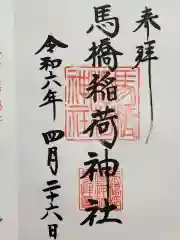 奉拝
馬橋稲荷神社
令和六年 四月二十六日